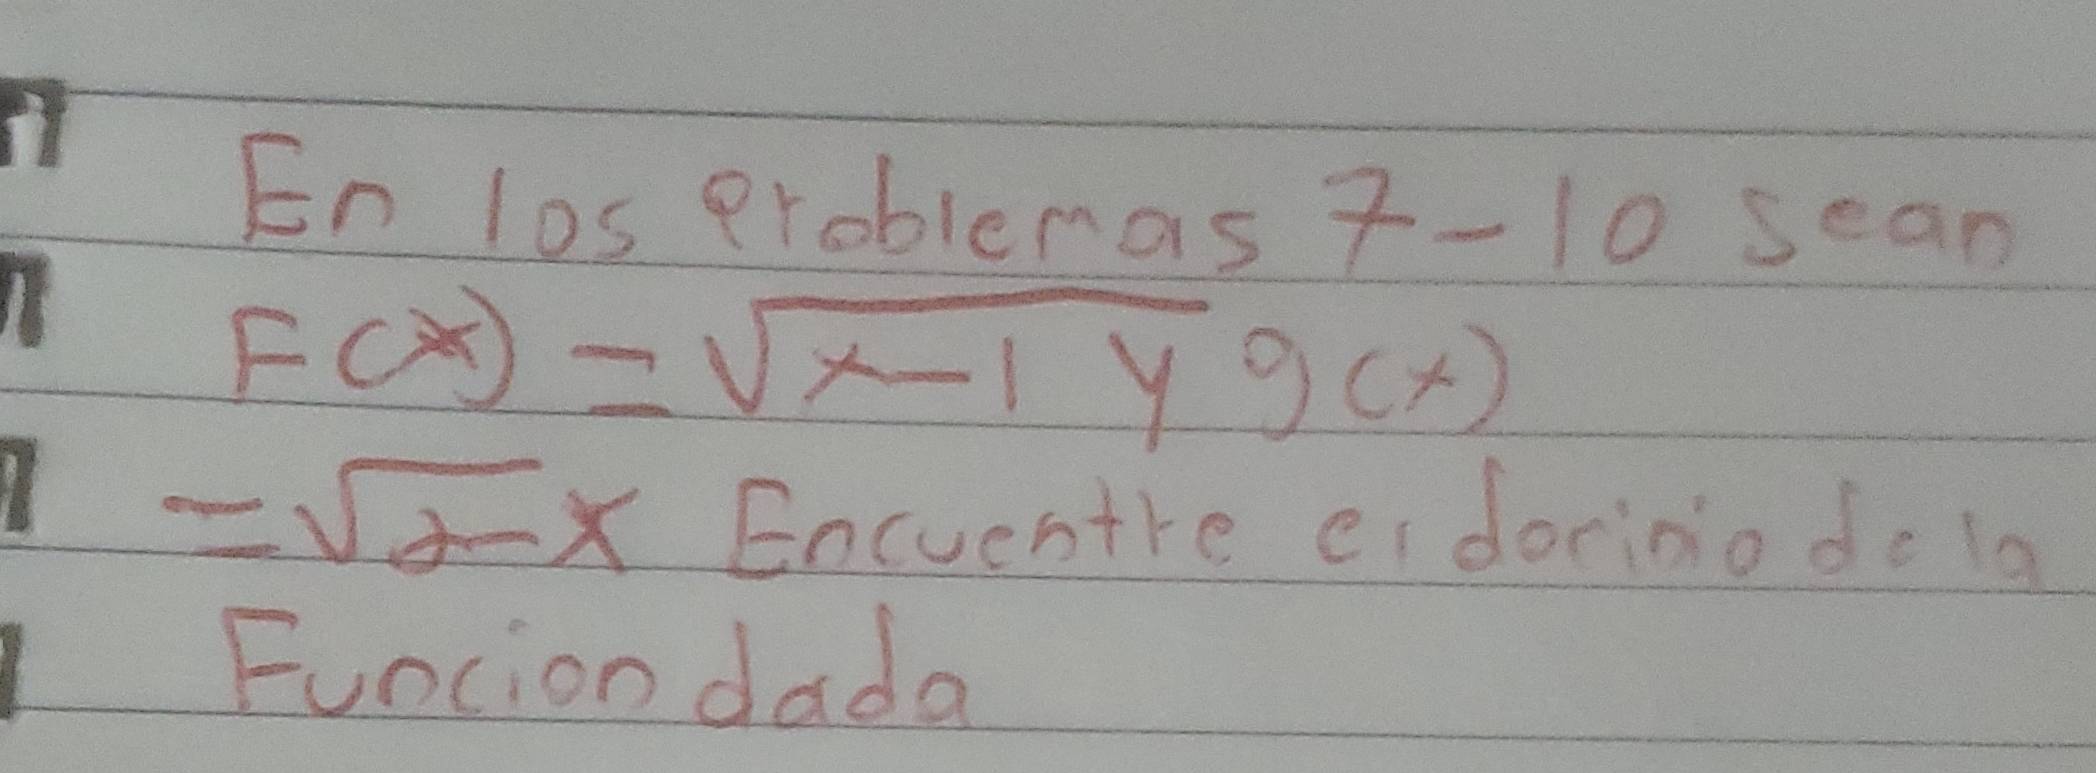 En los Problemas 7-10 sean
F(x) = √x-1 y g(x)
= √2-x Encuentre el dominio de la
Funcion dada